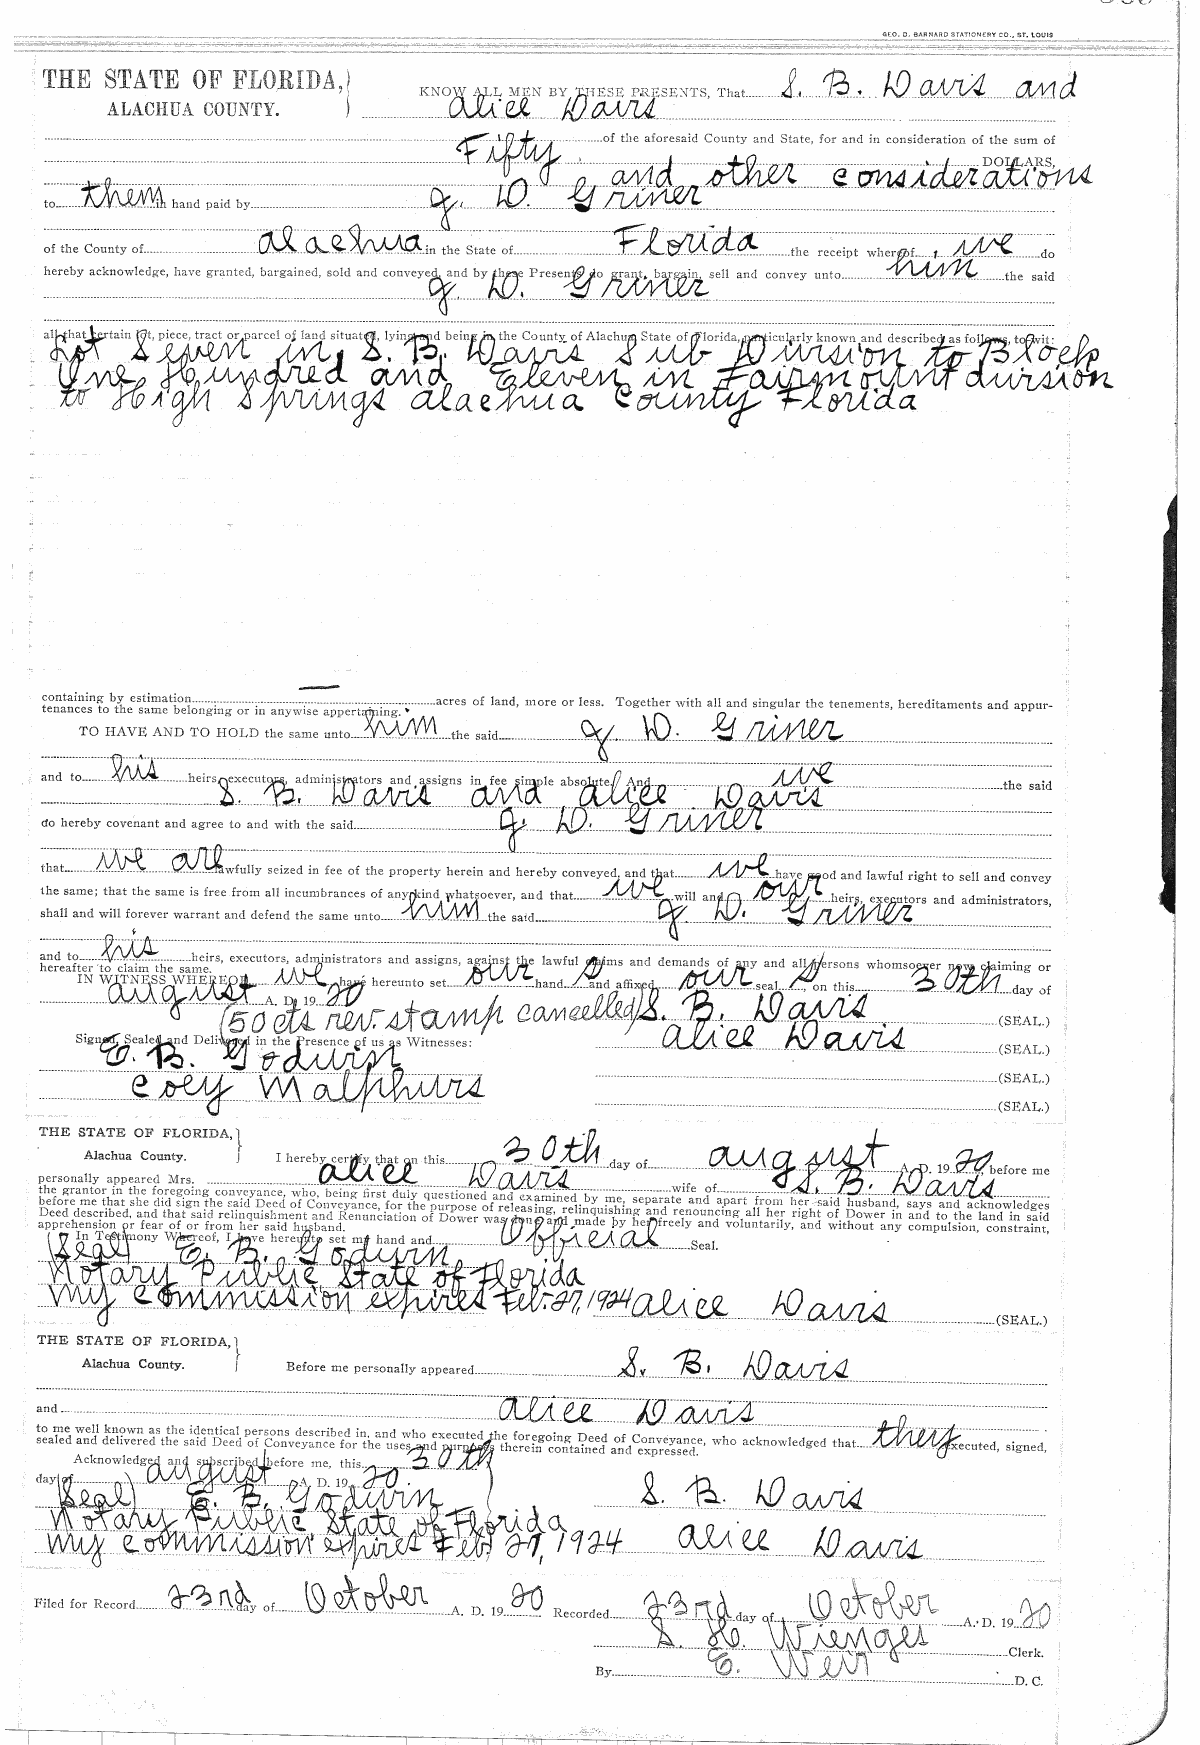 GEO. D. BARNARD STATIONERY CO., ST. LOUIS
THE STATE OF FLORIDA,
ALACHUA COUNTY.
KNOW ALL MEN BY THESE PRESENTS, That S. B. Davis and
Alice Davis
of the aforesaid County and State, for and in consideration of the sum of
Fifty DOLLARS,
and other considerations
to them in hand paid by J. D. Griner
of the County of Alachua in the State of Florida the receipt whereof, we do
hereby acknowledge, have granted, bargained, sold and conveyed, and by these Presents do grant, bargain, sell and convey unto him the said
J. D. Griner
all that certain lot, piece, tract or parcel of land situated, lying and being in the County of Alachua State of Florida, particularly known and described as follows, to-wit:
Lot Seven in S. B. Davis Sub Division to Block
One Hundred and Eleven in Fairmount division
to High Springs Alachua County Florida
containing by estimation — acres of land, more or less. Together with all and singular the tenements, hereditaments and appur-
tenances to the same belonging or in anywise appertaining.
TO HAVE AND TO HOLD the same unto him the said J. D. Griner
and to his heirs, executors, administrators and assigns in fee simple absolute. And we the said
S. B. Davis and Alice Davis
do hereby covenant and agree to and with the said J. D. Griner
that we are lawfully seized in fee of the property herein and hereby conveyed, and that we have good and lawful right to sell and convey
the same; that the same is free from all incumbrances of any kind whatsoever, and that we will and our heirs, executors and administrators,
shall and will forever warrant and defend the same unto him the said J. D. Griner
and to his heirs, executors, administrators and assigns, against the lawful claims and demands of any and all persons whomsoever now claiming or
hereafter to claim the same.
IN WITNESS WHEREOF, we have hereunto set our hand s and affixed our seal s, on this 30th day of
August A. D. 19 20
(50 cts rev. stamp cancelled) S. B. Davis (SEAL.)
Signed, Sealed and Delivered in the Presence of us as Witnesses:
Alice Davis (SEAL.)
E. B. Godwin
(SEAL.)
Coey Malphurs
(SEAL.)
THE STATE OF FLORIDA,
Alachua County.
I hereby certify that on this 30th day of August A. D. 19 20 before me
personally appeared Mrs. Alice Davis wife of S. B. Davis
the grantor in the foregoing conveyance, who, being first duly questioned and examined by me, separate and apart from her said husband, says and acknowledges
before me that she did sign the said Deed of Conveyance, for the purpose of releasing, relinquishing and renouncing all her right of Dower in and to the land in said
Deed described, and that said relinquishment and Renunciation of Dower was done and made by her freely and voluntarily, and without any compulsion, constraint,
apprehension or fear of or from her said husband.
In Testimony Whereof, I have hereunto set my hand and Official Seal.
(Seal) E. B. Godwin
Notary Public State of Florida
My commission expires Feb. 27, 1924 Alice Davis (SEAL.)
THE STATE OF FLORIDA,
Alachua County.
Before me personally appeared S. B. Davis
and Alice Davis
to me well known as the identical persons described in, and who executed the foregoing Deed of Conveyance, who acknowledged that they executed, signed,
sealed and delivered the said Deed of Conveyance for the uses and purposes therein contained and expressed.
Acknowledged and subscribed before me, this 30th
day of August A. D. 19 20.
(Seal) E. B. Godwin S. B. Davis
Notary Public, State of Florida
My commission expires Feb 27, 1924 Alice Davis
Filed for Record 23rd day of October A. D. 19 20 Recorded 23rd day of October A. D. 19 20
S. H. Wienges Clerk.
By E. Weir D. C.